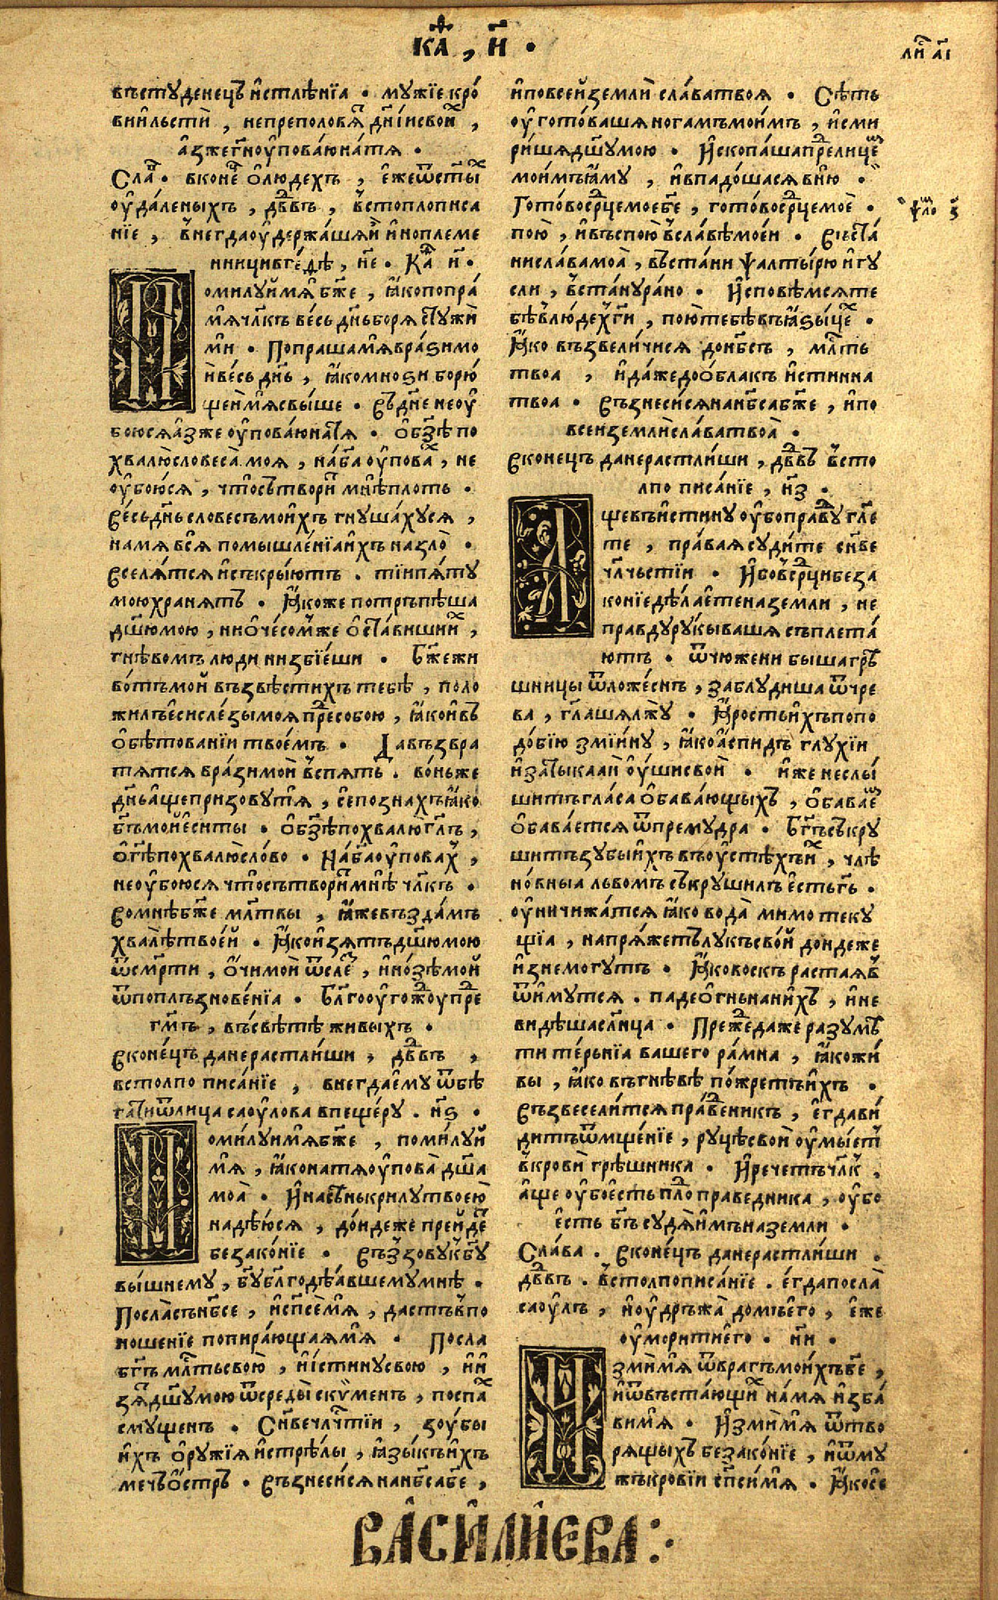 каⷴ҇, и҃ •
ли҃ а҃і
въстꙋденецъ истлѣнїа • мꙋжїе кро́
вии́льстѝ, непреполовѧ́ дн҃і́исвои̑,
а́зжегн҃иоу҆пова́юнатѧ •
Сла́в • вконе́ о҆людехъ, е҆жеѿст҃ы
оу҆даленыхъ, дв҃дъ, в҆столпописа
нїе, в҆негдаоу҆держа́шѧи иноплеме
нницивге́ѳѣ, н҃е • Ка҃ и҃ •
Помилꙋ́ймѧ бж҃е, ꙗ҆копопра́
мѧчл҃къ весь дн҃ьборѧ стꙋжи
ми • Попрашамѧврази́мо
и҆ве́сь дн҃ь, ꙗ҆комноѕи борю́
щеи҆мѧсвыше • Въдн҃е неоу҆
боюсѧа́зже оу҆пова́юнатѧ • Об҃зѣ по
хвалю̀словеса̀ моѧ, наб҃а оу҆пова́х, не
оу҆бою́сѧ, что̀сътвори́т мнѣпло́ть •
Ве́сьдн҃ь словесъмои́хъ гнꙋша́хꙋсѧ,
намѧ всѧ̀ помышле́нїаи҆хъ назло̀ •
Вселѧ́тсѧ и҆съкры́ютъ. ті́ипѧтꙋ
мою̀хранѧ́тъ • Ꙗ҆коже потръпѣ́ша
дш҃юмою, ниѻ҆чесо́мже ѻ҆ста́виши и҆х,
гнѣ́вомъ люди низвїе́ши • Бж҃ежи
во́тъмой възвѣсти́хъ тебѣ, поло
жилъе҆си сле́зымоѧ предсобо́ю, ꙗ҆коивъ
ѻ҆бѣтованїи твое́мъ • Давъзвра
тѧ́тсѧ врази́мои в҆спѧть. во́ньже
дн҃ьа́щепризовꙋ́тѧ, се́познахъꙗ҆ко
бг҃ъмо́йе҆си ты • Об҃зѣпохвалю̀гл҃ъ,
ѻ҆г҃ѣпохвалю̀сло́во • Наб҃аоу҆пова́х,
неоу҆бою́сѧ что̀сътвори́т мнѣ чл҃къ •
Вомнѣбж҃е мл҃твы, ꙗ҆жевъзда́мъ
хвалѣ́твое́й • Ꙗ҆кои҆зѧ́тъдш҃юмою
ѿсм҃рти, ѻ҆чимои ѿсле́з, ино́зѣмои
ѿпоплъзнове́нїа • Благооу҆гождоу҆пре
гм҃ъ, въсвѣтѣ живыхъ •
Вконе́цъ данерастли́ши, дв҃дъ,
встолпо писа́нїе, внегдаемꙋ ѿбѣ
гатиѿлица саоу҆лова впеще́рꙋ. н҃ѕ •
Поми́лꙋимѧбж҃е, поми́лꙋй
мѧ, ꙗ҆конатѧоу҆пова̀ дш҃а
моа̀ • Инасѣнькрилꙋтвоею̀
надѣ́юсѧ, до́ндеже прейде́т
безако́нїе • Въззовꙋкб҃ꙋ
вы́шнемꙋ, бг҃ꙋблгодѣ́авшемꙋмнѣ •
Посла̀сън҃бсе, и҆сп҃семѧ, дастъв҆по
ношенїе попира́ющаѧмѧ • Посла
бг҃ъ мл҃тьсвою̀, и҆и҆стинꙋсвою, и҆и҆
зѧ́дш҃ꙋмою̀ ѿсреды скѵ́менъ, поспа́х
смꙋщенъ • Сн҃ове члч҃стїи, зоу́бы
и҆хъ ѻ҆рꙋжїѧ и҆стрѣ́лы, ꙗ҆зы́къи҆хъ
ме́чьѻ҆стръ • Възнеси́сѧнан҃бсабж҃е,
и҆повсе́йземлѝ сла́ватвоѧ • Сѣ́ть
оу҆гото́вашѧногамъмои́мъ, и҆сми
ри́шѧдш҃ꙋмою • Ископа́шапредлице́м
мои́мъꙗ҆мꙋ, и҆впадо́шасѧ вню̀ •
Гото́восрдцемоебж҃е, гото́восрдцемоѐ •
пою̀, и҆въспою̀ в҆сла́вѣмое́и • Въста́
нисла́вамоа̀, въста́ни ѱалты́рю и҆гꙋ
сли, в҆ста́нꙋра́но • Исповѣмсѧте
бѣв҆лю́дехги, пою́тебѣвъꙗ҆ѕы́цех •
Ꙗ҆ко възвели́чисѧ дон҃бсъ, мл҃ть
твоа, и҆да́жедоо́блакъ и҆стинна
твоа • Възнеси́сѧнан҃бсабж҃е, и҆по
всеиземлѝсла́ватвоа̀ •
Вконецъ данерастли́ши, дв҃дъ в҆сто
лпо писа́нїе, н҃з •
Ащевъи́стинꙋоу҆боправдꙋ гл҃е
те, пра́ваѧсꙋди́те сн҃ве
члч҃ьстїи • Ибовсрдцибеза
ко́нїедѣ́лаетеназемли, не
правдꙋрꙋкывашѧ съплета́
ютъ • ѿчюжени бышагрѣ
шницы ѿложе́снъ, заблꙋдиша ѿчре
ва, гл҃ашѧлжꙋ • Ꙗ҆ростьи҆хъпопо
до́бїю змїи́нꙋ, ꙗ҆коа́спидъ глꙋхїи
и҆затыкааи оу҆шисвои • и҆же неслы́
шитъгла́са ѻ҆бава́ющыхъ, ѻ҆бавае́м
ѻ҆бава́етсѧ ѿпремꙋдра • Бг҃ъсъкрꙋ
ши́тъзꙋбыи́хъ въоу҆стѣхъи҆х, члѣ
но́вныа львомъ съкрꙋши́лъ е҆стьгь •
оу҆ничижа́тсѧ ꙗ҆ко вода̀ мимо текꙋ
щїа, напрѧже́тълꙋкъсвой до́ндеже
и҆знемогꙋтъ • Ꙗ҆ковоскъ растаѧв
ѿи́мꙋтсѧ. падеѻ҆гньнани́хъ, и҆не
видѣшасл҃нца • Преждедаже разꙋмѣ
ти те́рьнїа вашего ра́мна, ꙗ҆кожи́
вы, ꙗ҆ко въгнѣвѣ по́жретъи́хъ •
Възвесели́тсѧ пра́ведникъ, е҆гдави́
дитъѿмще́нїе, рꙋцѣсвои оу҆мы́ет
в҆крови̑ грѣшника • Ирече́тъчл҃къ,
а́ще оу҆боестьпло праведника, оу҆бо
е҆сть бг҃ъ сꙋдѧ̀и́мъназемли •
Сла́ва. Вконе́цъ данерастли́ши.
дв҃дъ. в҆столпописа́нїе. е҆гдапосла̀
саоу҆лъ, и҆оу҆држа̀ домъе҆го̀, е҆же
оу҆мори́тиего̀ • н҃и •
Измімѧ ѿврагъмои́хъбж҃е,
и҆ѿвъста́ющих намѧ и҆зба́
вимѧ • Изми́мѧ ѿтво
рѧщыхъ безако́нїе, и҆ѿмꙋ
жъкровїи сп҃симѧ • Ꙗ҆косе
ѱло з҃
ВАСИЛИЕВА:·